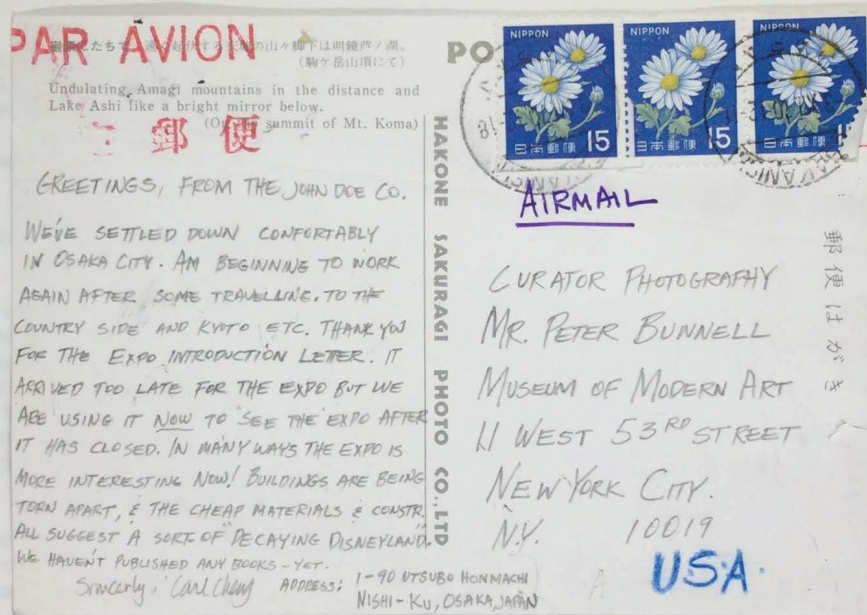 PAR AVION
遠く起伏する天城の山々脚下は明鏡芦ノ湖。
(駒ケ岳山頂にて)
Undulating Amagi mountains in the distance and
Lake Ashi like a bright mirror below.
(On the summit of Mt. Koma)
郵便
GREETINGS, FROM THE JOHN DOE CO.
WE'VE SETTLED DOWN CONFORTABLY
IN OSAKA CITY. AM BEGINNING TO WORK
AGAIN AFTER SOME TRAVELLING. TO THE
COUNTRY SIDE AND KYOTO ETC. THANK YOU
FOR THE EXPO INTRODUCTION LETTER. IT
ARRIVED TOO LATE FOR THE EXPO BUT WE
ARE USING IT NOW TO "SEE THE" EXPO AFTER
IT HAS CLOSED. IN MANY WAYS THE EXPO IS
MORE INTERESTING NOW! BUILDINGS ARE BEING
TORN APART, & THE CHEAP MATERIALS & CONSTR.
ALL SUGGEST A SORT OF "DECAYING DISNEYLAND".
WE HAVEN'T PUBLISHED ANY BOOKS - YET.
Sincerely, Carl Cheng ADDRESS: 1-90 UTSUBO HONMACHI
NISHI-KU, OSAKA, JAPAN
HAKONE SAKURAGI PHOTO CO., LTD
PO
NIPPON
15
日本郵便
NIPPON
15
日本郵便
NIPPON
日本郵便
AIRMAIL
郵便はがき
CURATOR PHOTOGRAPHY
MR. PETER BUNNELL
MUSEUM OF MODERN ART
11 WEST 53RD STREET
NEW YORK CITY.
N.Y. 10019
USA.